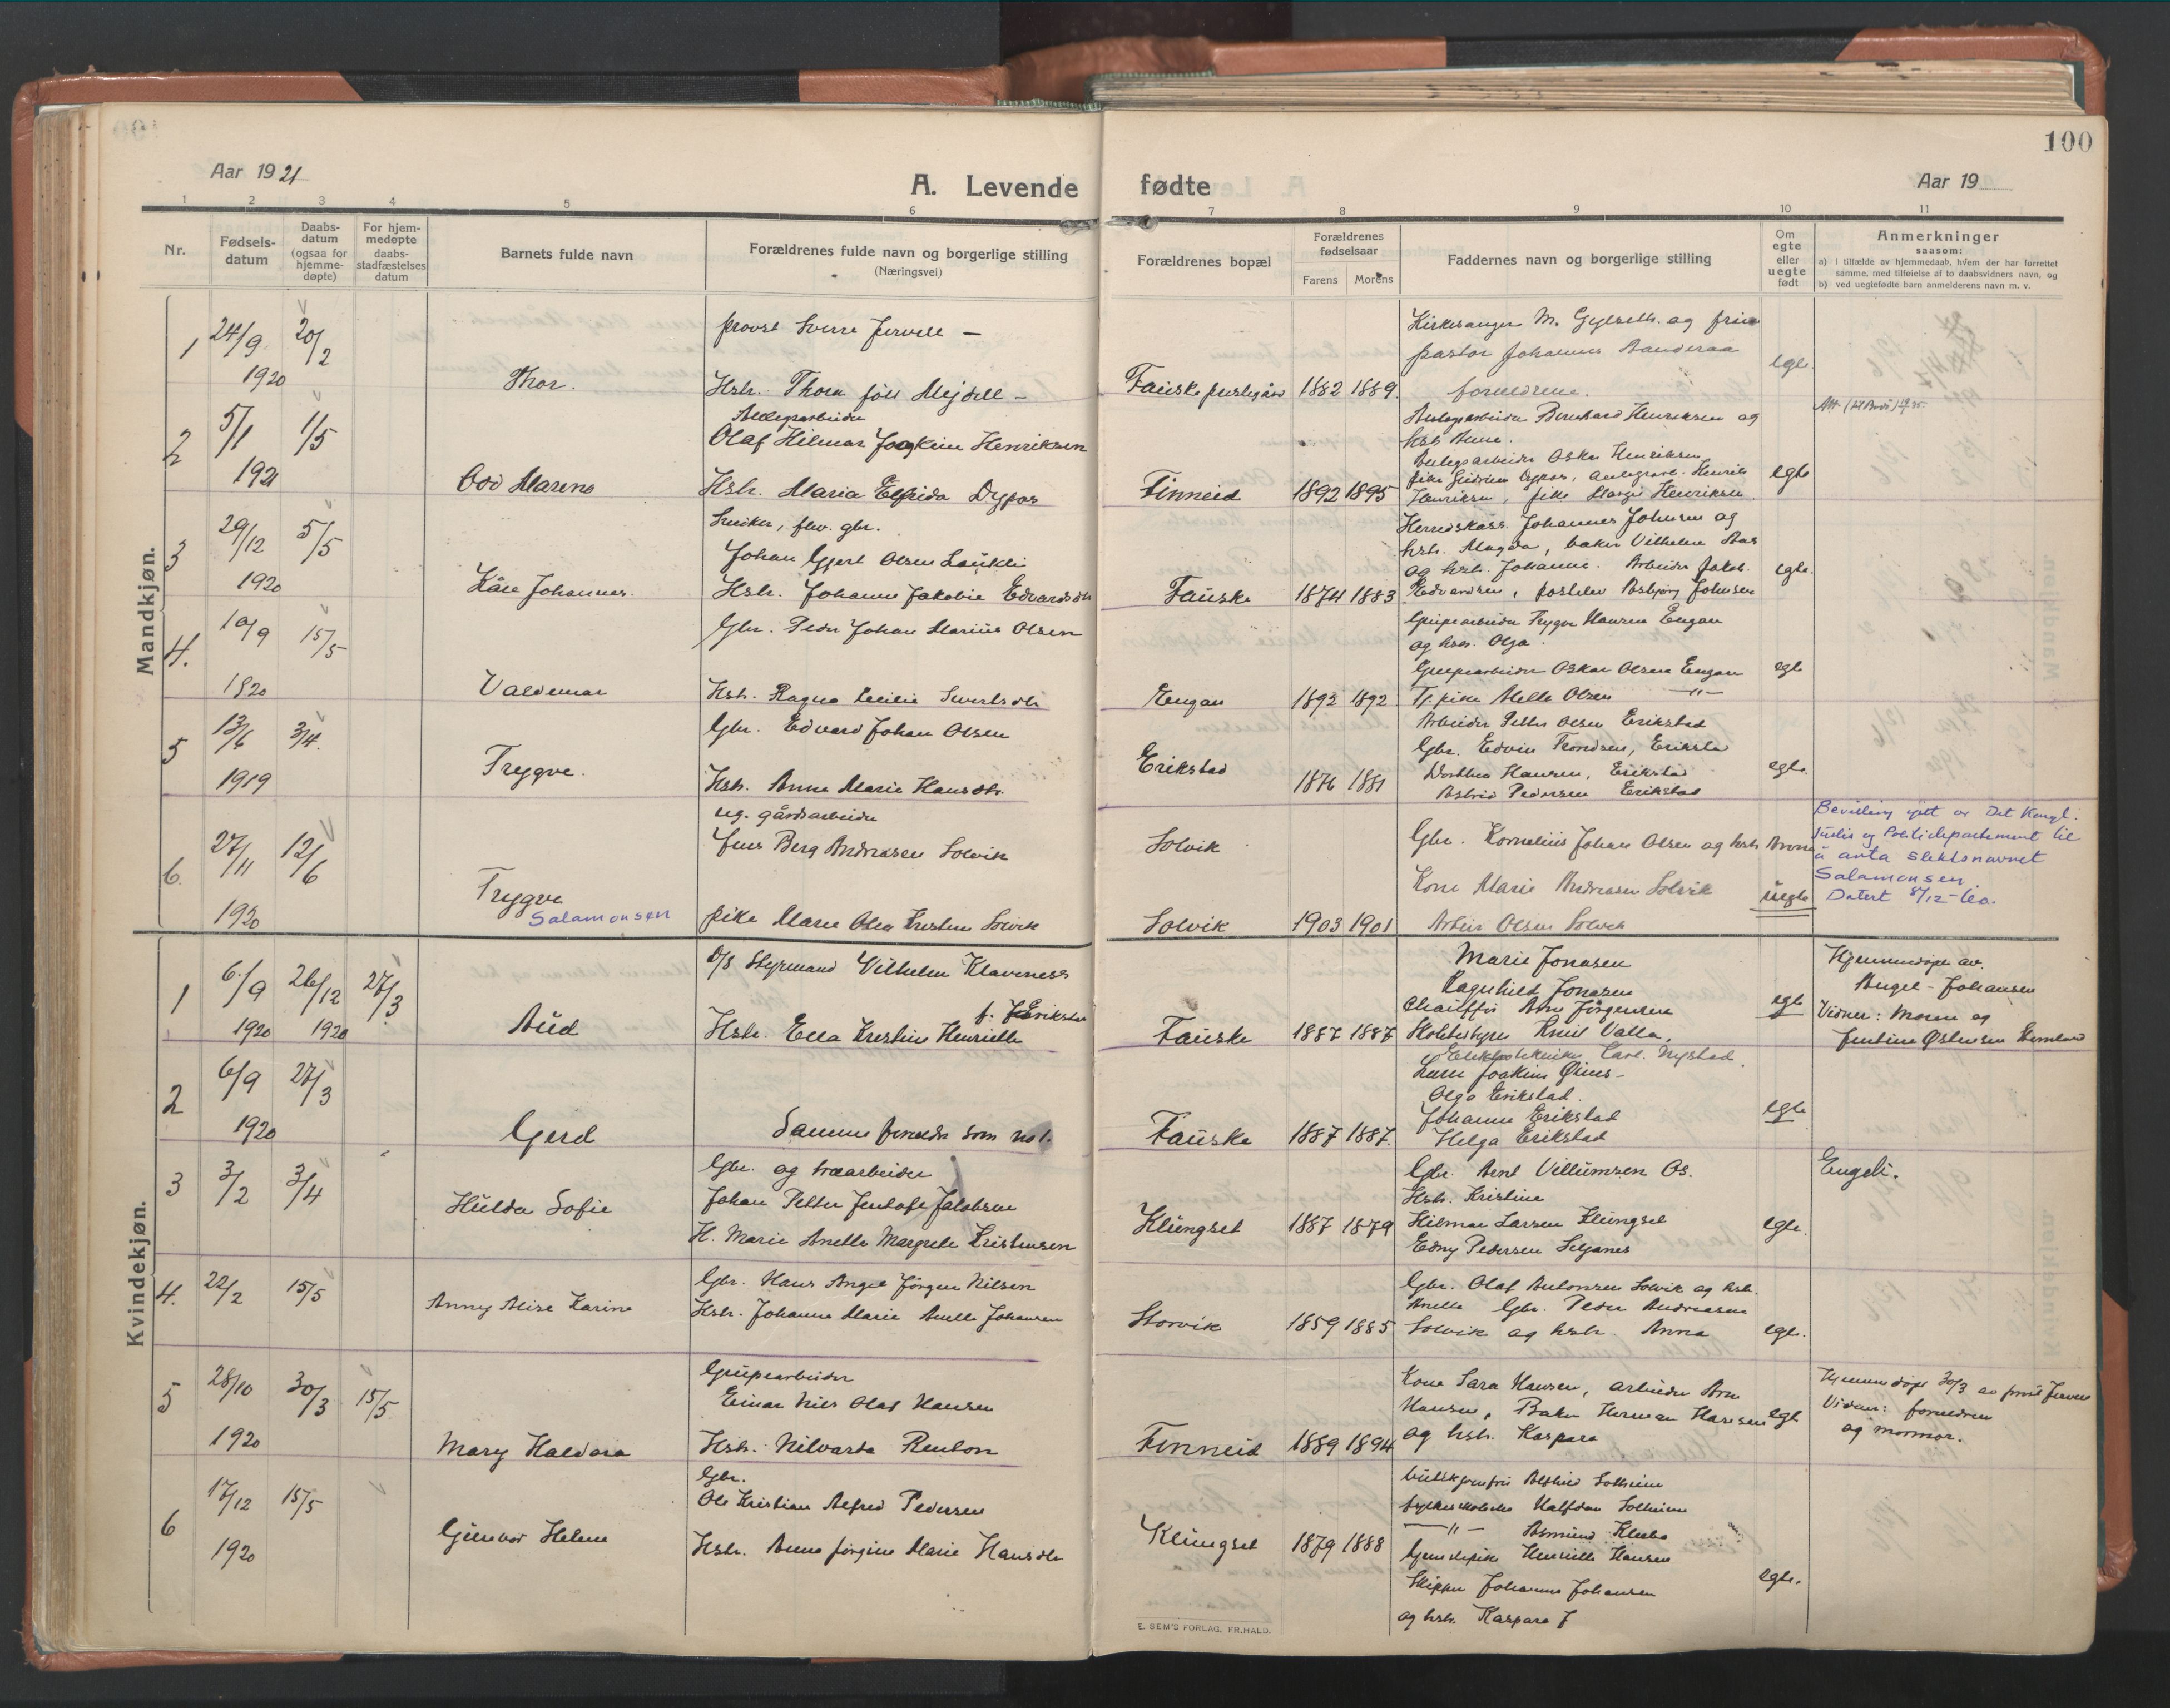 100
Aar 1921
A. Levende fødte
Aar 19
1 2 3 4 5 6 7 8 9 10 11
Nr.
Fødsels-
datum
Daabs-
datum
(ogsaa for
hjemme-
døpte)
For hjem-
medøpte
daabs-
stadfæstelses
datum
Barnets fulde navn
Forældrenes fulde navn og borgerlige stilling
(Næringsvei)
Forældrenes bopæl
Forældrenes
fødselsaar
Farens Morens
Faddernes navn og borgerlige stilling
Om
egte
eller
uegte
født
Anmerkninger
saasom:
a) i tilfælde av hjemmedaab, hvem der har forrettet
samme, med tilføielse af to daabsvidners navn, og
b) ved uegtefødte barn anmelderens navn m. v.
Mandkjøn.
1 24/9 1920 20/2
Thor.
provst Sverre Jervell –
Hstr. Thora født Mejdell –
Fauske prestegård 1882 1889
Kirkesanger M. Gylseth. og frue
pastor Johannes Aanderaa
foreldrene.
egte.
2 5/1 1921 1/5
Odd Mareno
Anlegsarbeider
Olaf Hilmar Joakim Henriksen
Hstr. Maria Elfrida Dypos
Finneid 1892 1895
Anlegsarbeider Bernhard Henriksen og
hstr Anne.
Anlegsarbeider Oskar Henriksen
Henriksen, pike Margit Henriksen
egte
3 29/12 1920 5/5
Kåre Johannes.
Snekker, fhv. gbr.
Johan Gjert Olsen Laukli
Hstr. Johanne Jakobie Edvardsdtr
Fauske 1874 1883
Herredskass. Johannes Johnsen og
hstr. Magda, baker Vilhelm Aas
og hstr. Johanne. Arbeider Jakob
Edvardsen, postelev Asbjørg Johnsen
egte.
4. 10/9 1920 15/5
Valdemar
Gbr. Peder Johan Marius Olsen
Hstr. Ragna Cecilie Sivertsdtr
Engan 1893 1892
Grubearbeider Trygve Hansen Engan
og hstr. Olga
Grubearbeider Oskar Olsen Engan
Tj. pike Mette Olsen –"–
egte
5 13/6 1919 3/4.
Trygve.
Gbr. Edvard Johan Olsen
Hstr. Anna Marie Hansdtr.
Erikstad 1876 1881
Arbeider Petter Olsen Erikstad
Gbr. Edvin Trondsen, Erikstad
Dorthea Hansen, Erikstad
Astrid Pedersen Erikstad
egte.
6. 27/11 1920 12/6
Trygve
Salamonsen
ug. gårdsarbeider
Jens Berg Andreasen Solvik
pike Marie Olea Kristine Solvik
Solvik
Solvik 1903 1901
Gbr. Kornelius Johan Olsen og hstr Anna
Kone Marie Andreasen Solvik
Arthur Olsen Solvik
uegte
Bevilling gitt av Det Kongl.
Justis og Politidepartement til
å anta slektsnavnet
Salamonsen
Datert 8/12-60.
Kvindekjøn.
1 6/9 1920 26/12 1920 27/3
Aud
D/S Styrmand Vilhelm Klaveness
Hstr. Ella Kristine Henriette f. Erikstad
Fauske 1887 1887
Marie Jonasen
Ragnhild Jonasen
Chauffør Arne Jørgensen
Hotelbestyrer Knut Valla,
Elektrotekniker Carl Nystad.
egte
Hjemmedøpt av.
Angel-Johansen
Vidner: Moren og
Jentine Østensen
2 6/9 1920 27/3
Gerd
Samme foreldre som no 1.
Fauske 1887 1887.
Lars Joakim Øines –
Olga Erikstad.
Johanne Erikstad
Helga Erikstad
egte
3 3/2 3/4
Hulda Sofie
Gbr. og træarbeider
Johan Petter Jentoft Jakobsen
H. Marie Anette Margrete Kristensen
Klungset 1887 1879
Gbr. Arnt Villumsen Os.
Hstr. Kristine
Hilmar Larsen Klungset
Edny Pedersen Leganes
egte.
Engeli.
4. 22/2 15/5
Anny Alise Karine
Gbr. Hans Angel Jørgen Nilsen
Hstr. Johanna Marie Anette Johansen
Storvik 1859 1885
Gbr. Olaf Antonsen Solvik og hstr.
Anette Gbr. Peder Andreasen
Solvik og hstr. Anna
egte.
5 28/10 1920 30/3 15/5
Mary Haldora
Grubearbeider
Einar Nils Olaf Hansen
Hstr. Nilvarda Renton
Finneid 1889 1894
Kone Sara Hansen, arbeider Arne
Hansen, Baker Herman Hansen
og hstr. Kaspara
egte
Hjemmedøpt 30/3 av prost Jervell
Vidner: foreldrene
og mormor.
6 17/12 1920 15/5
Gunvor Helene
Gbr.
Ole Kristian Alfred Pedersen
Hstr. Anna Jørgine Marie Hansdtr
Klungset 1879 1888
Butikjomfru Alfhild Solheim
Halfdan Solheim
–"– Asmund Kleba
Henriette Hansen
Skipper Johannes Johansen
og hstr. Kaspara J
egte.
E. SEM'S FORLAG, FR.HALD.